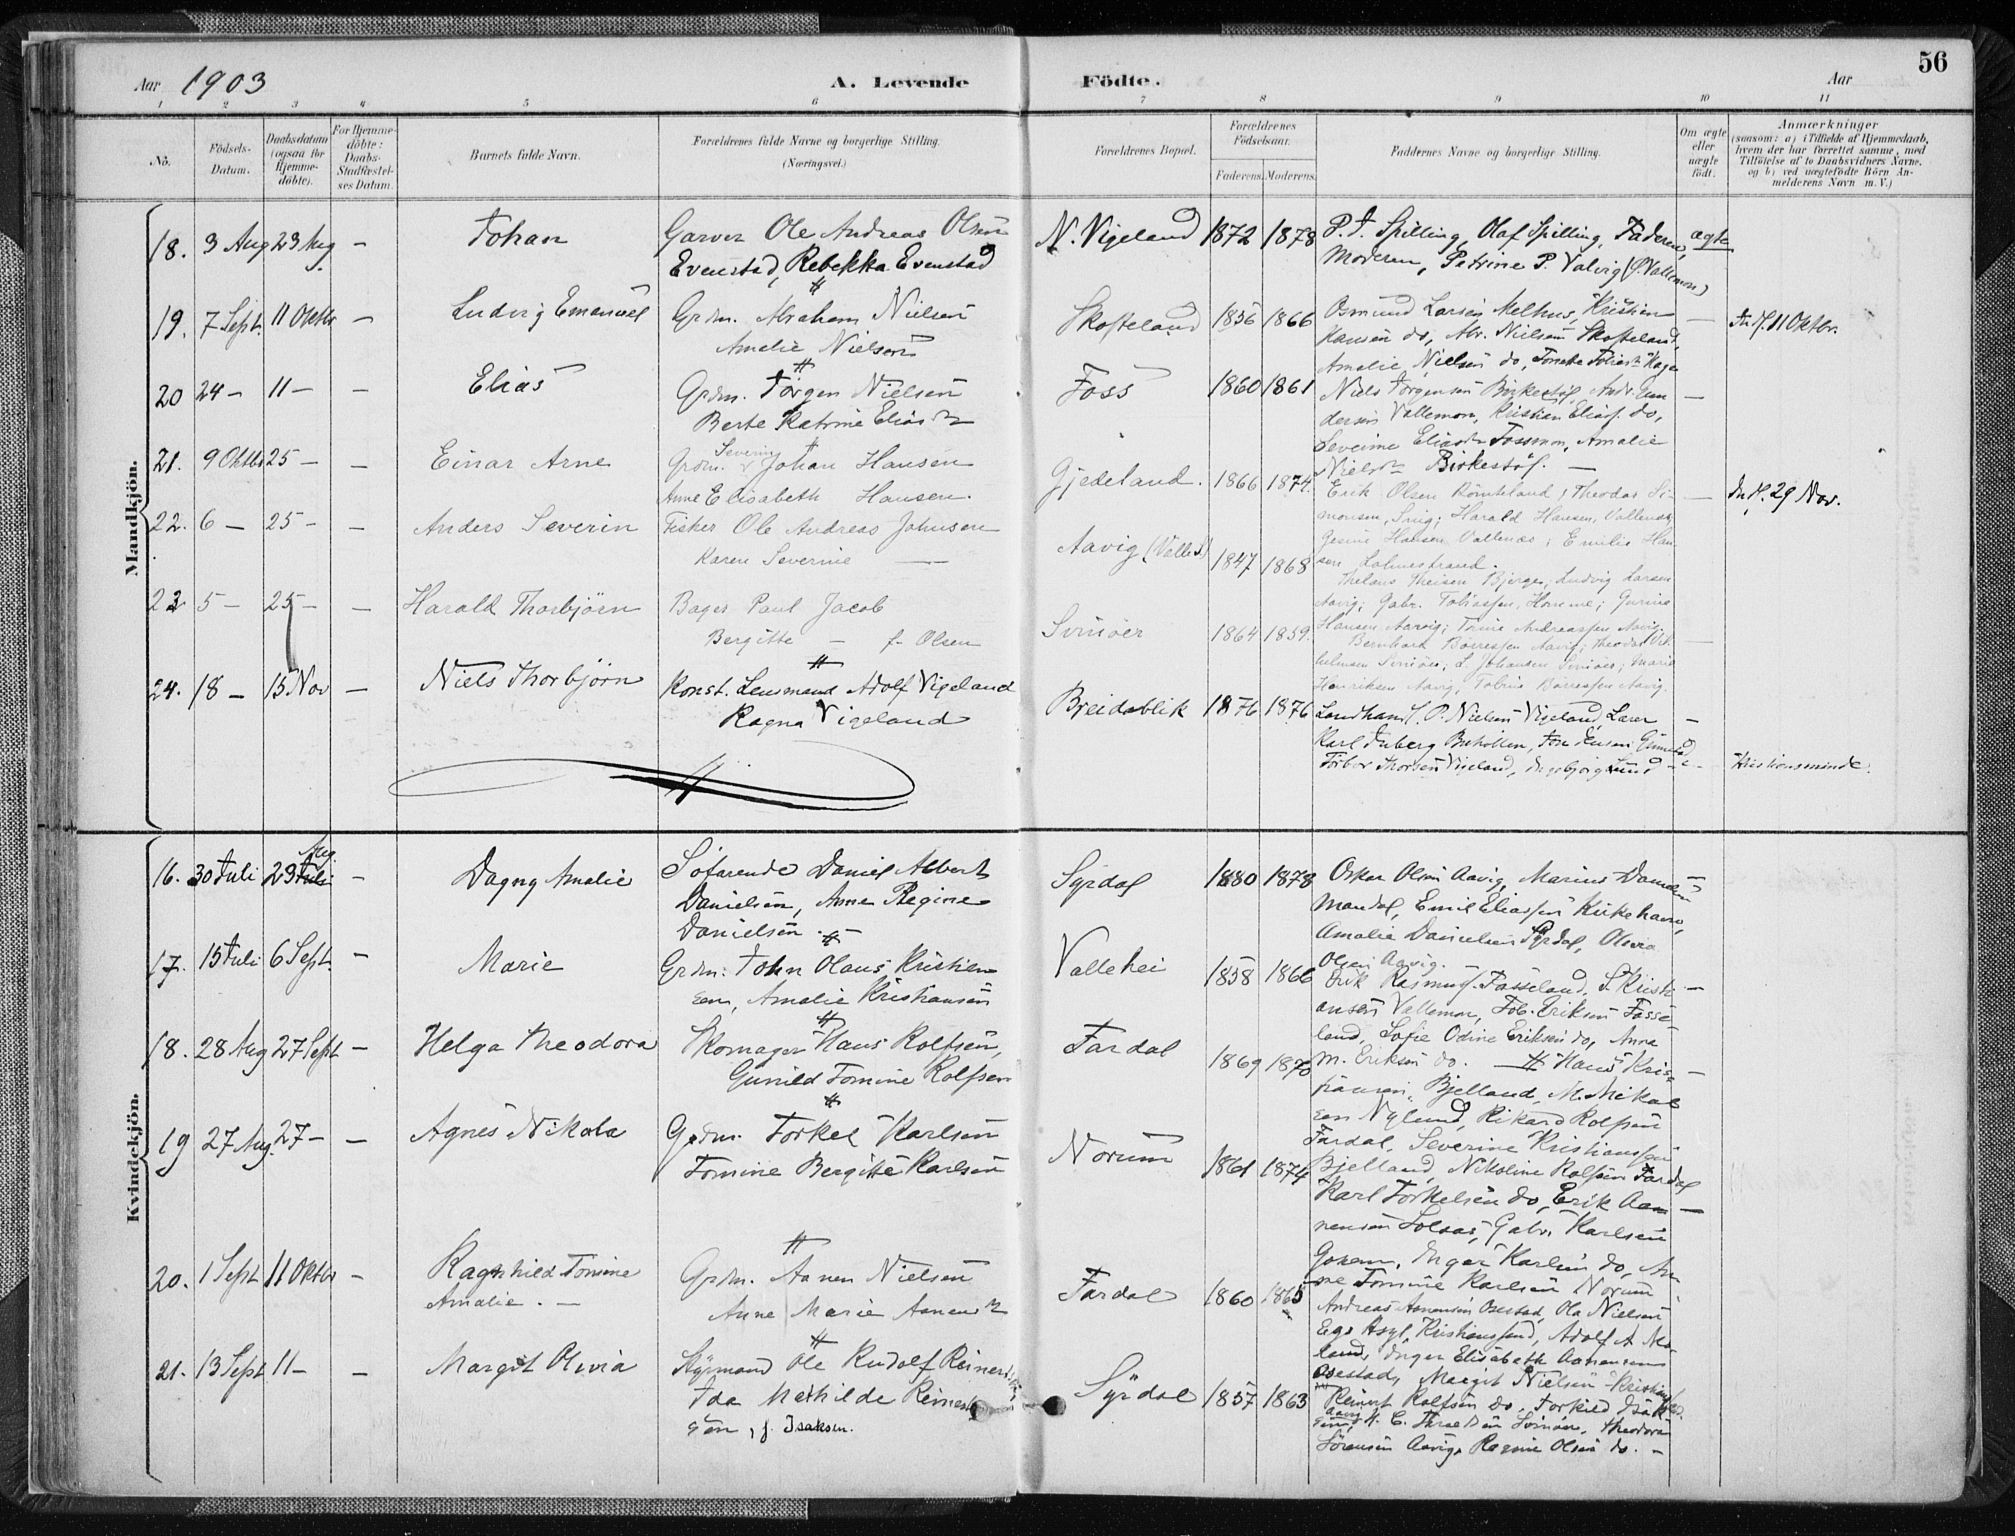 56
Aar 1903
A. Levende Födte.
Aar
1 2 3 4 5 6 7 8 9 10 11
No.
Födsels-Datum.
Daabsdatum (ogsaa for Hjemme-döbte).
For Hjemme-döbte: Daabs-Stadfæstel-ses Datum.
Barnets fulde Navn.
Forældrenes fulde Navne og borgerlige Stilling.
(Næringsvei.)
Forældrenes Bopæl.
Forældrenes Födselsaar.
Faderens. Moderens.
Faddernes Navne og borgerlige Stilling.
Om ægte eller uægte födt.
Anmærkninger
(saasom: a) i Tilfælde af Hjemmedaab,
hvem der har forrettet samme, med
Tilföielse af to Daabsvidners Navne.
og b) ved uægtefödte Börn An-
melderens Navn m. V.)
Mandkjön.
18. 3 Aug 23 Aug. – Johan
Garver Ole Andreas Olsen
Evenstad, Rebekka Evenstad
N. Vigeland 1872 1878
P. J. Spilling, Olaf Spilling, Faderen,
Moderen, Petrine P. Valvig (Ö. Vallemon)
ægte
19. 7 Sept. 11 Oktbr – Ludvig Emanuel
Grdm. Abraham Nielsen
Amalie Nielsen
Skofteland 1856 1866
Osmund Larsen Melhus, Kristian
Hansen do, Abr. Nielsen Skofteland,
Amalie Nielsen do,
– 11 Oktbr.
20 24 – 11 – – Elias
Grdm. Jörgen Nielsen
Berte Katrine Eliasdr
Foss 1860 1861
Niels Jörgensen Birkestöl, Andr. Gun
dersen Vallemon, Kristian Eliass. do,
Severine Eliasdr Fossmon, Amalie
Nielsdr Birkestöl. –
–
21. 9 Oktbr 25 – – Einar Arne
Grdm. Severin Johan Hansen
Anne Elisabeth Hansen.
Gjedeland. 1866 1874.
Erik Olsen Römteland, Theodor Si-
monsen, Snig; Harald Hansen, Vallenæs,
Gesine Hansen Vallenæs; Emilie Han
sen Holmestrand.
– 29 Nov.
22. 6 – 25 – – Anders Severin
Fisker Ole Andreas Johnsen
Karen Severine —
Aavig (Valle S) 1847 1868
Theisen Bjerge, Ludvig Larsen
Aavig; Gabr. Tobiassen, Homme; Gurine
Hansen Aavig; Trine Andreassen Aavig.
23 5 – 25 – – Harald Thorbjörn
Bager Paul Jacob
Bergitte – f. Olsen
Svinöer 1864 1859.
Bernhard Börresen Aavig; Theodor Vil-
helmsen Svinöer; L. Johansen Svinöer; Marie
Henriksen Aavig, Tobine Börresen Aavig.
–
24. 18 – 15 Nov – Niels Thorbjörn
Konst. Lensmand Adolf Vigeland
Ragna Vigeland
Breidablik 1876 1876
Landhandl. P. Nielsen Vigeland, Lærer
Karl Inberg
Thorsen Vigeland, Ingebjörg Lund
–
Kristiansminde.
Kvindekjön.
16. 30 Juli 23 Juli Aug – Dagny Amalie
Söfarende Daniel Albert
Danielsen, Anne Regine
Danielsen. –
Syrdal 1880 1878
Oskar Olsen Aavig, Marius Danielsen
Mandal, Emil Eliassen Kirkehavn,
Amalie Danielsen Syrdal, Olivia
Olsen Aavig.
–
17. 15 Juli 6 Sept. – Marie
Grdm: John Olaus Kristian
sen, Amalie Kristiansen
Vallehei 1858 1866
Erik Rasmuss. Fasseland, S. Kristi-
ansen Vallemon, Tob. Eriksen Fasse-
land, Sofie Odine Eriksen do, Anna
M. Eriksen do.
–
18. 28 Aug 27 Sept – Helga Theodora
Skomager Hans Rolfsen,
Gunild Tomine Rolfsen
Fardal 1869 1870
Hans Kris-
tiansen, Bjelland, M. Mikal
sen Nylund, Rikard Rolfsen
Fardal, Severine Kristiansen
Bjelland, Nikoline Rolfsen Fardal
–
19 27 Aug. 27 – – Agnes Nikola
Grdm. Torkel Karlsen
Tomine Bergitte Karlsen
Norum 1861 1874
Karl Torkelsen do, Erik Aan
nensen Solaas, Gabr. Karlsen
Inger Karlsen do, An-
ne Tomine Karlsen Norum
–
20. 1 Sept 11 Oktbr – Ragnhild Tomine
Amalie. –
Grdm. Aanen Nielsen
Anne Marie Aanensdr
Fardal 1860 1865
Andreas Aanensen Osestad, Ola Nielsen
Egs Asyl, Kristianssand, Adolf A. Mo-
land, Inger Elisabeth Aanensen
Osestad, Margit Nielsen Kristianssand.
21. 13 Sept 11 – – Margit Olivia
Styrmand Ole Rudolf Reinert
Ida Mathilde Reinert
sen, f. Isaksen.
Syrdal 1857 1863
Reinert Rolfsen do, Torkild Isak
sen, Svinöer, Theodora
Sörensen Aavig, Ragine Olsen do. –